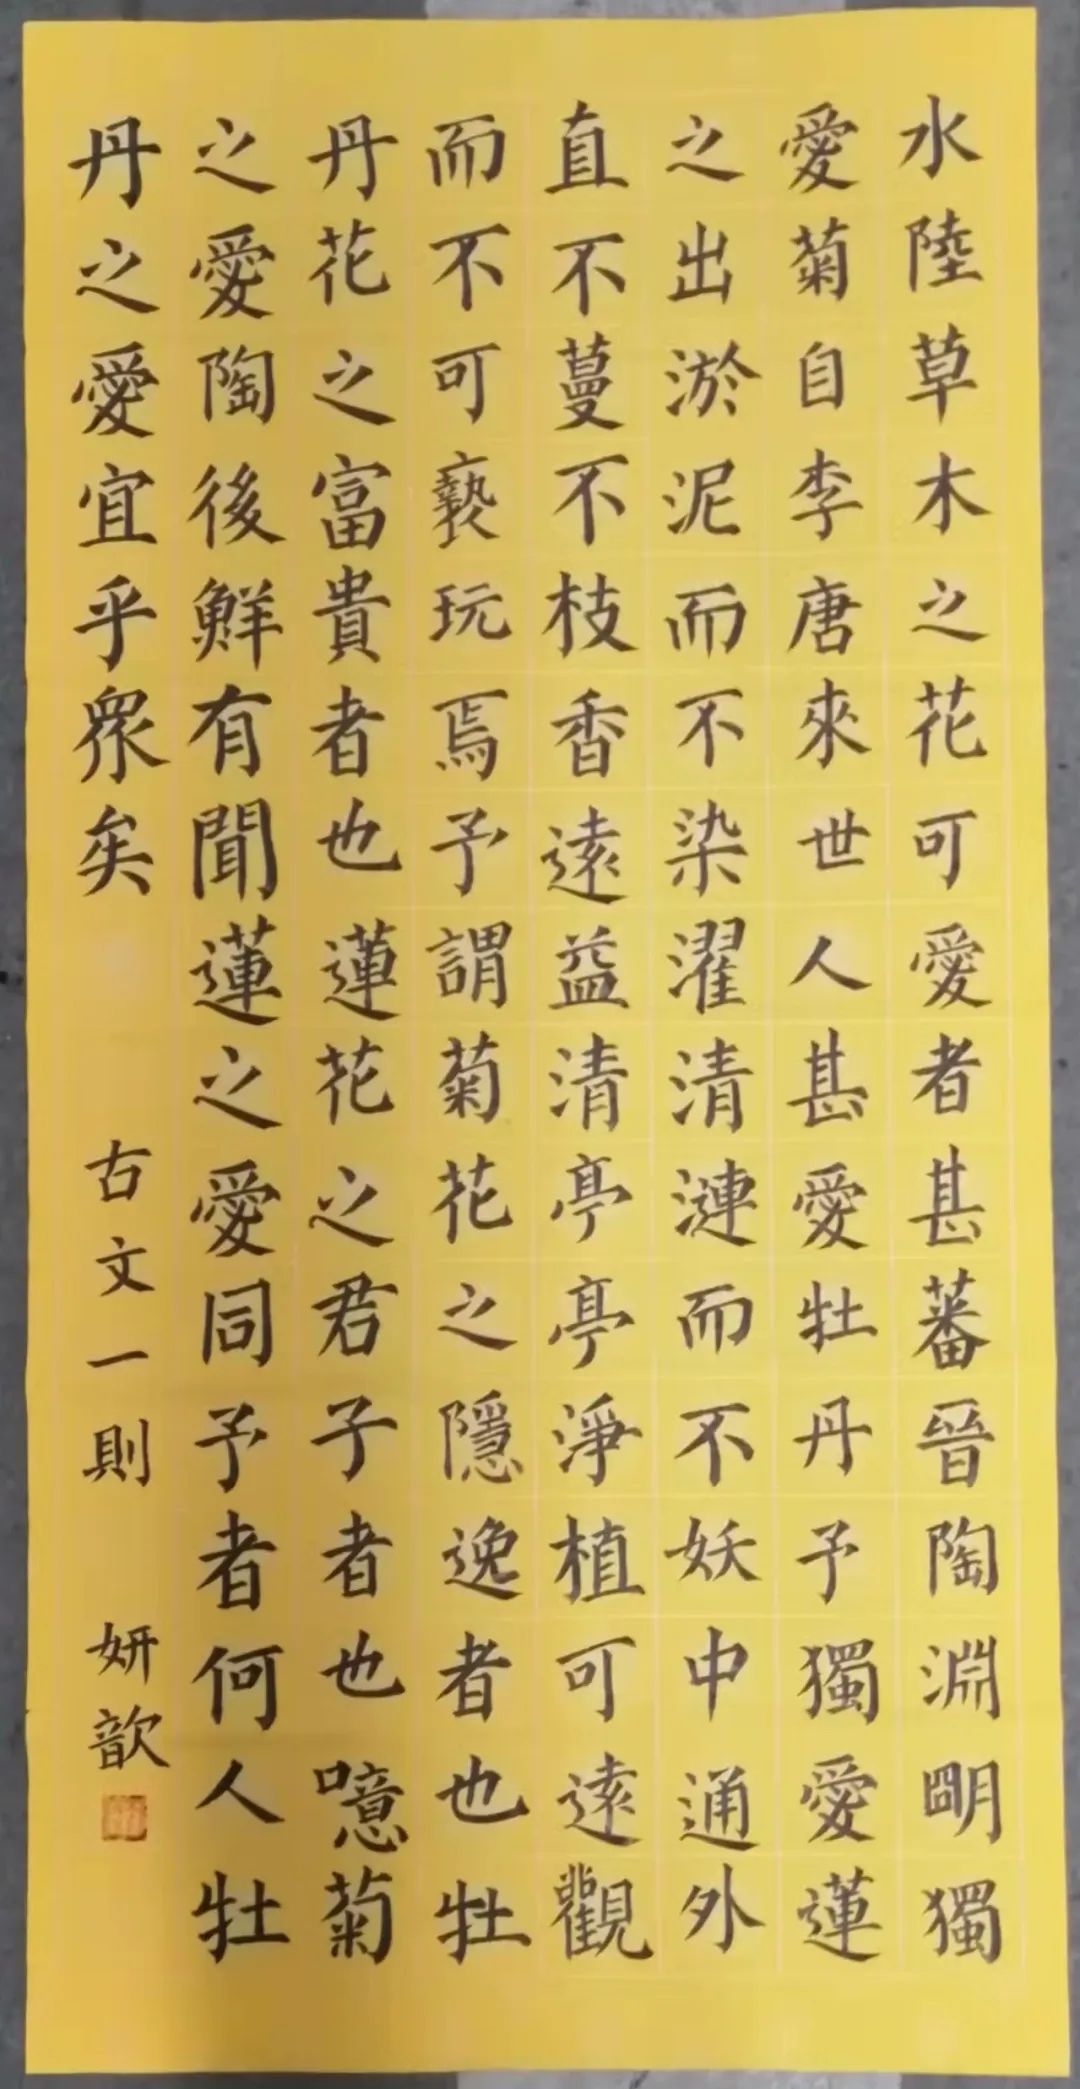 水陸草木之花可愛者甚蕃晉陶淵明獨
愛菊自李唐來世人甚愛牡丹予獨愛蓮
之出淤泥而不染濯清漣而不妖中通外
直不蔓不枝香遠益清亭亭淨植可遠觀
而不可褻玩焉予謂菊花之隱逸者也牡
丹花之富貴者也蓮花之君子者也噫菊
之愛陶後鮮有聞蓮之愛同予者何人牡
丹之愛宜乎眾矣
古文一則
妍歆